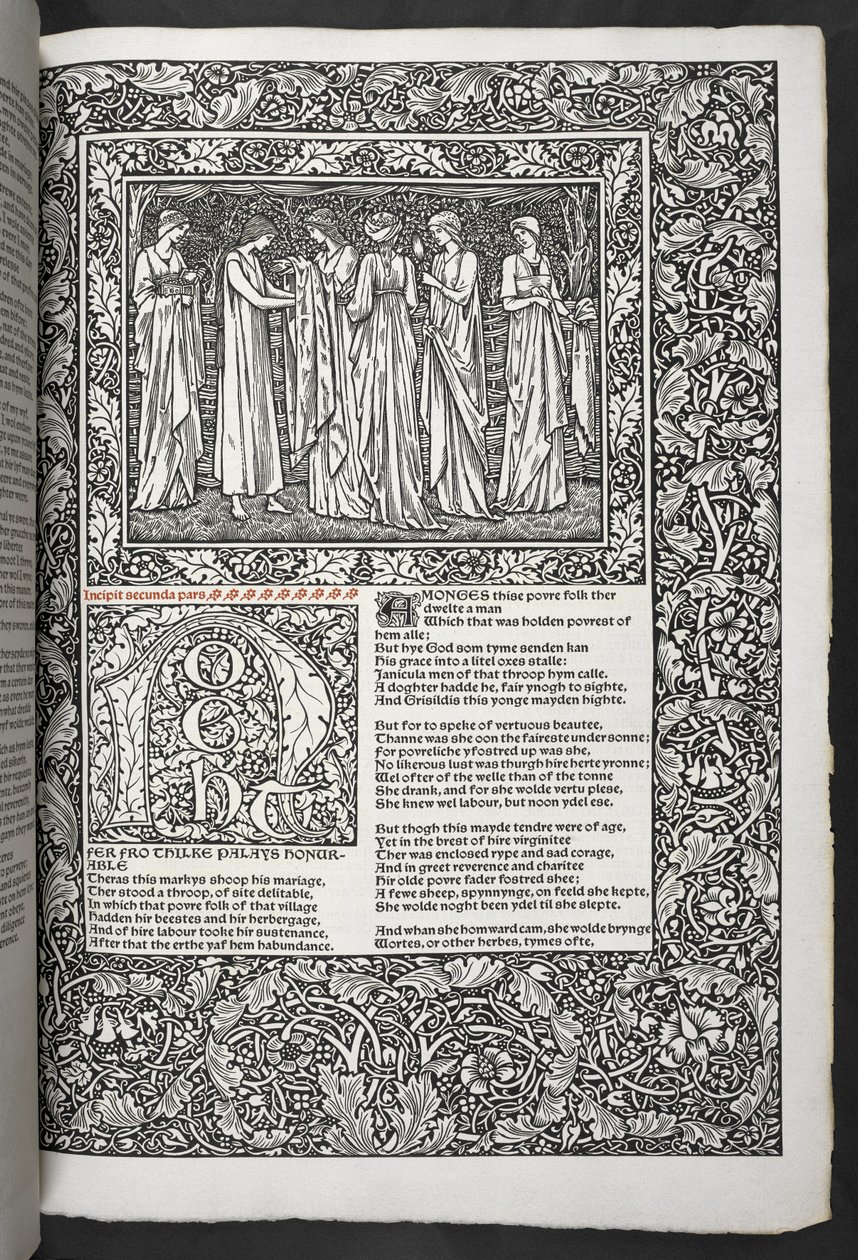 Incipit secunda pars
NOGhT
FER FRO THILKE PALAYS HONUR-
ABLE
Theras this markys shoop his mariage,
Ther stood a throop, of site delitable,
In which that povre folk of that village
Hadden hir beestes and hir herbergage,
And of hire labour tooke hir sustenance,
After that the erthe yaf hem habundance.
AMONGES thise povre folk ther
dwelte a man
Which that was holden povrest of
hem alle;
But hye God som tyme senden kan
His grace into a litel oxes stalle:
Janicula men of that throop hym calle.
A doghter hadde he, fair ynogh to sighte,
And Grisildis this yonge mayden highte.
But for to speke of vertuous beautee,
Thanne was she oon the faireste under sonne;
For povreliche yfostred up was she,
No likerous lust was thurgh hire herte yronne;
Wel ofter of the welle than of the tonne
She drank, and for she wolde vertu plese,
She knew wel labour, but noon ydel ese.
But thogh this mayde tendre were of age,
Yet in the brest of hire virginitee
Ther was enclosed rype and sad corage,
And in greet reverence and charitee
Hir olde povre fader fostred shee;
A fewe sheep, spynnynge, on feeld she kepte,
She wolde noght been ydel til she slepte.
And whan she homward cam, she wolde brynge
Wortes, or other herbes, tymes ofte,